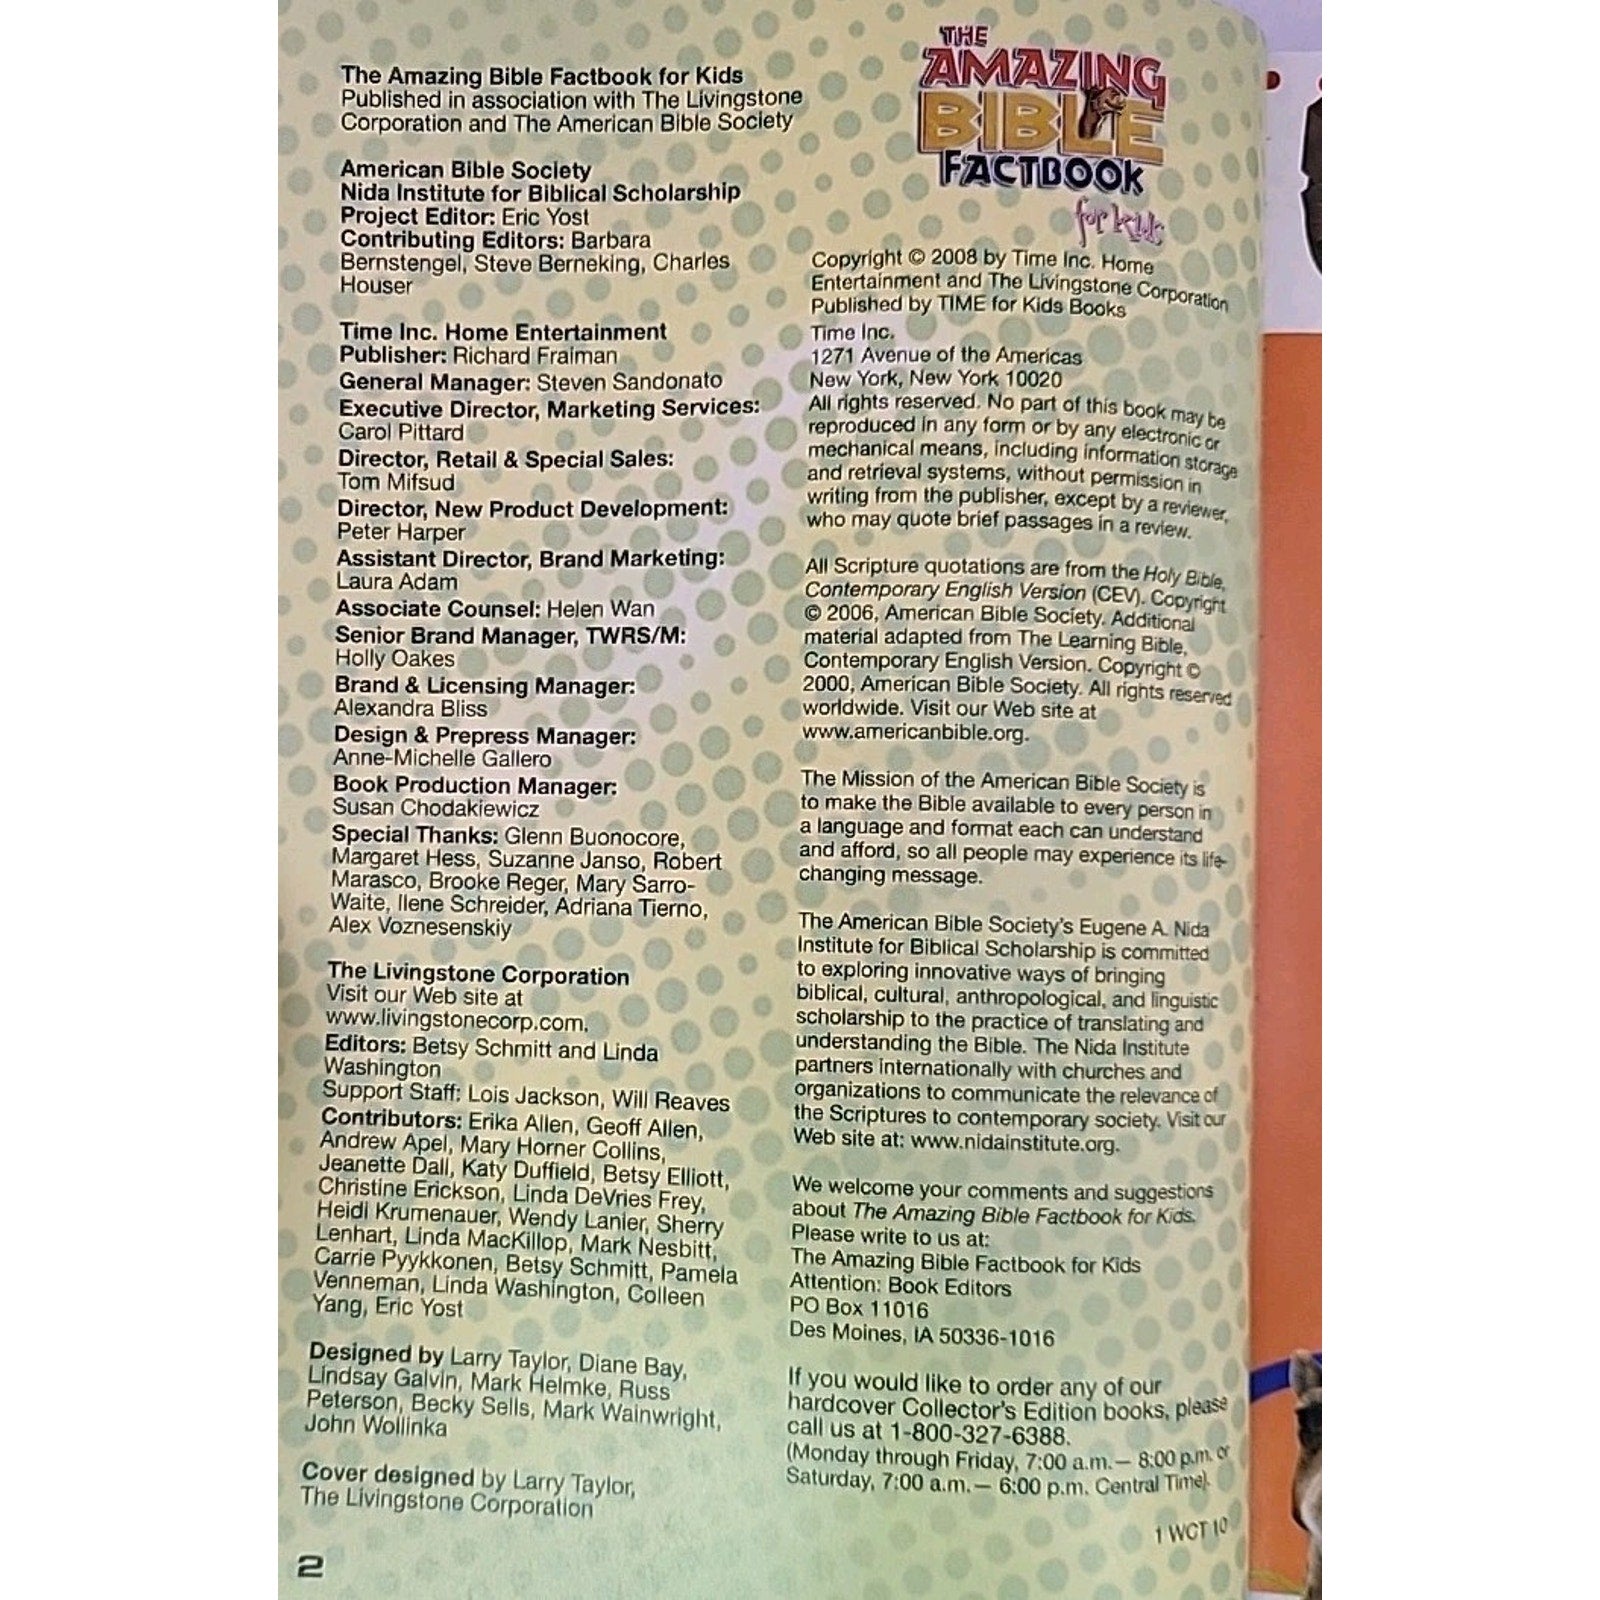 The Amazing Bible Factbook for Kids
Published in association with The Livingstone
Corporation and The American Bible Society
American Bible Society
Nida Institute for Biblical Scholarship
Project Editor: Eric Yost
Contributing Editors: Barbara
Bernstengel, Steve Berneking, Charles
Houser
Time Inc. Home Entertainment
Publisher: Richard Fraiman
General Manager: Steven Sandonato
Executive Director, Marketing Services:
Carol Pittard
Director, Retail & Special Sales:
Tom Mifsud
Director, New Product Development:
Peter Harper
Assistant Director, Brand Marketing:
Laura Adam
Associate Counsel: Helen Wan
Senior Brand Manager, TWRS/M:
Holly Oakes
Brand & Licensing Manager:
Alexandra Bliss
Design & Prepress Manager:
Anne-Michelle Gallero
Book Production Manager:
Susan Chodakiewicz
Special Thanks: Glenn Buonocore,
Margaret Hess, Suzanne Janso, Robert
Marasco, Brooke Reger, Mary Sarro-
Waite, Ilene Schreider, Adriana Tierno,
Alex Voznesenskiy
The Livingstone Corporation
Visit our Web site at
www.livingstonecorp.com.
Editors: Betsy Schmitt and Linda
Washington
Support Staff: Lois Jackson, Will Reaves
Contributors: Erika Allen, Geoff Allen,
Andrew Apel, Mary Horner Collins,
Jeanette Dall, Katy Duffield, Betsy Elliott,
Christine Erickson, Linda DeVries Frey,
Heidi Krumenauer, Wendy Lanier, Sherry
Lenhart, Linda MacKillop, Mark Nesbitt,
Carrie Pyykkonen, Betsy Schmitt, Pamela
Venneman, Linda Washington, Colleen
Yang, Eric Yost
Designed by Larry Taylor, Diane Bay,
Lindsay Galvin, Mark Helmke, Russ
Peterson, Becky Sells, Mark Wainwright,
John Wollinka
Cover designed by Larry Taylor,
The Livingstone Corporation
2
THE
AMAZING
BIBLE
FACTBOOK
for kids
Copyright © 2008 by Time Inc. Home
Entertainment and The Livingstone Corporation
Published by TIME for Kids Books
Time Inc.
1271 Avenue of the Americas
New York, New York 10020
All rights reserved. No part of this book may be
reproduced in any form or by any electronic or
mechanical means, including information storage
and retrieval systems, without permission in
writing from the publisher, except by a reviewer,
who may quote brief passages in a review.
All Scripture quotations are from the Holy Bible,
Contemporary English Version (CEV). Copyright
© 2006, American Bible Society. Additional
material adapted from The Learning Bible,
Contemporary English Version. Copyright ©
2000, American Bible Society. All rights reserved
worldwide. Visit our Web site at
www.americanbible.org.
The Mission of the American Bible Society is
to make the Bible available to every person in
a language and format each can understand
and afford, so all people may experience its life-
changing message.
The American Bible Society's Eugene A. Nida
Institute for Biblical Scholarship is committed
to exploring innovative ways of bringing
biblical, cultural, anthropological, and linguistic
scholarship to the practice of translating and
understanding the Bible. The Nida Institute
partners internationally with churches and
organizations to communicate the relevance of
the Scriptures to contemporary society. Visit our
Web site at: www.nidainstitute.org.
We welcome your comments and suggestions
about The Amazing Bible Factbook for Kids.
Please write to us at:
The Amazing Bible Factbook for Kids
Attention: Book Editors
PO Box 11016
Des Moines, IA 50336-1016
If you would like to order any of our
hardcover Collector's Edition books, please
call us at 1-800-327-6388.
(Monday through Friday, 7:00 a.m.— 8:00 p.m. or
Saturday, 7:00 a.m.— 6:00 p.m. Central Time).
1 WCT 10